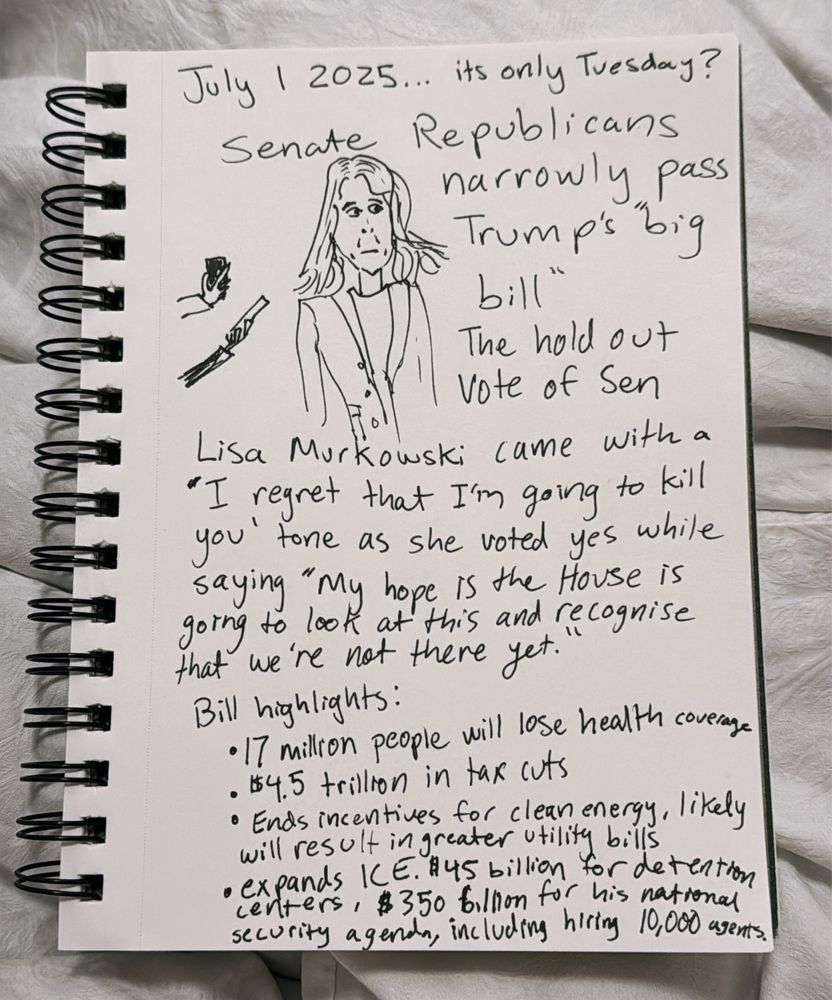 July 1 2025... its only Tuesday?
Senate Republicans
narrowly pass
Trump's "big
bill"
The hold out
vote of Sen
Lisa Murkowski came with a
"I regret that I'm going to kill
you' tone as she voted yes while
saying "My hope is the House is
going to look at this and recognise
that we're not there yet."
Bill highlights:
• 17 million people will lose health coverage
• $4.5 trillion in tax cuts
• Ends incentives for clean energy, likely
will result in greater utility bills
• expands ICE. $45 billion for detention
centers, $350 billion for his national
security agenda, including hiring 10,000 agents.